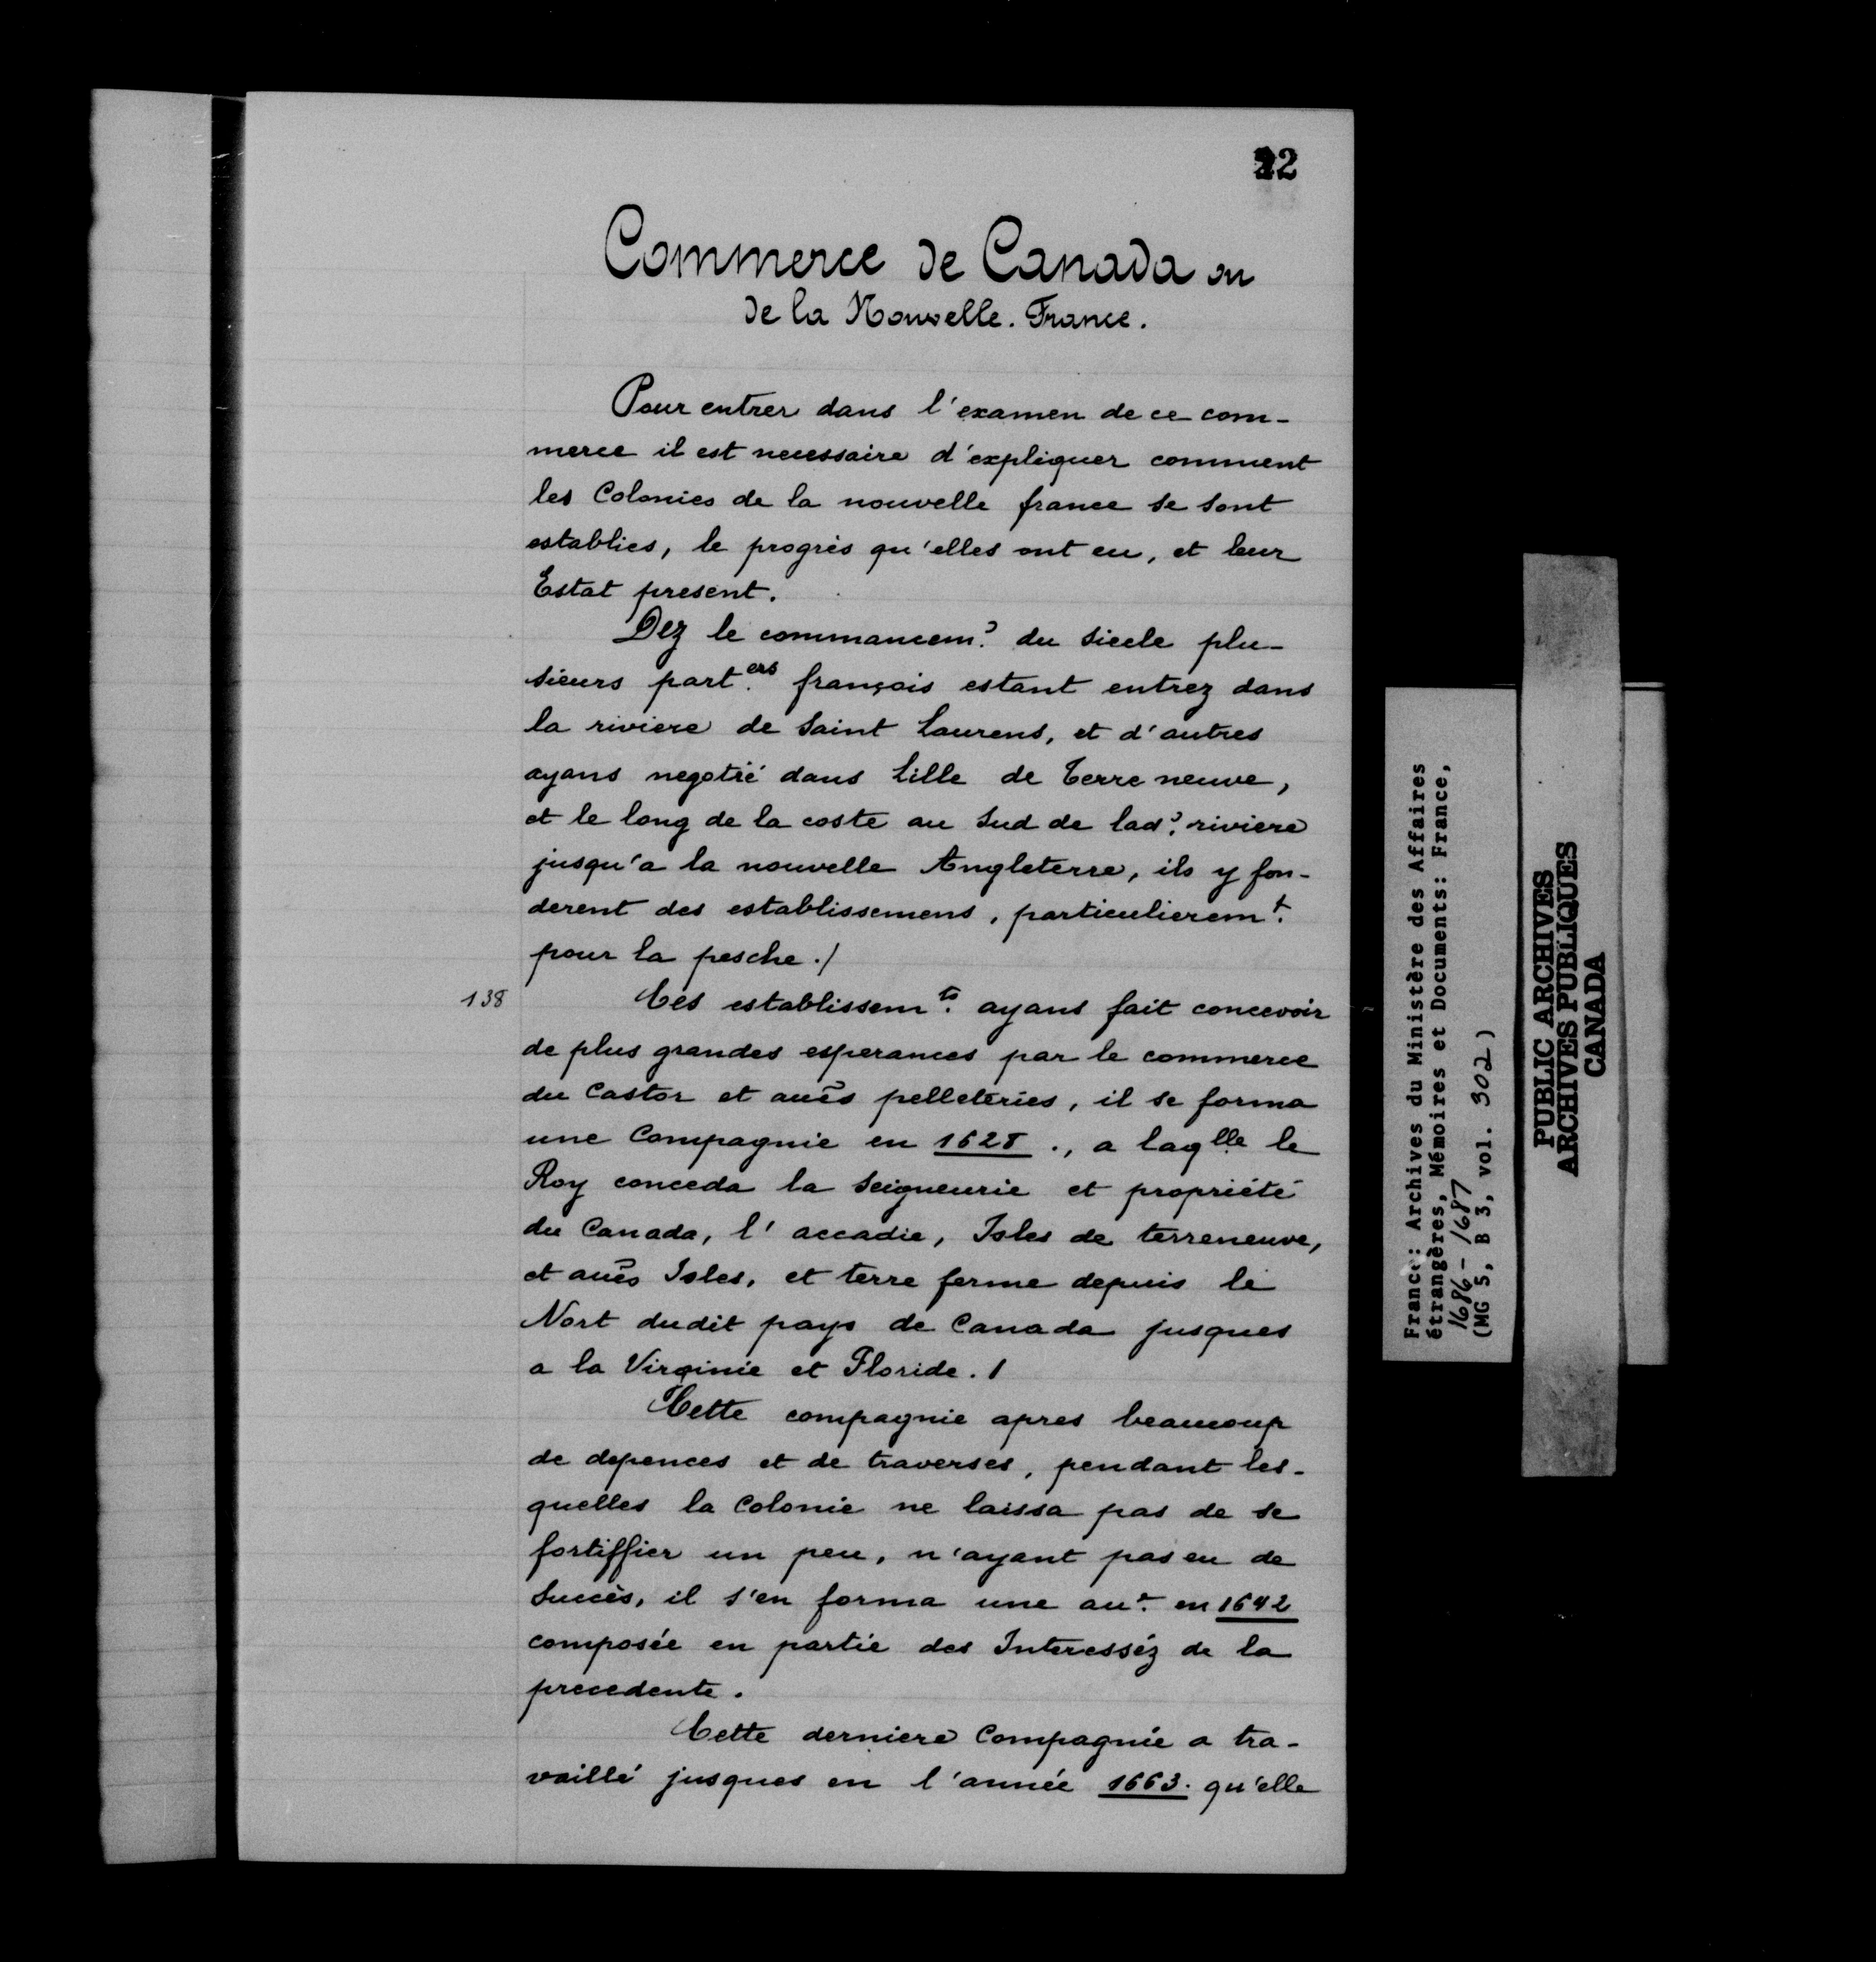 22
Commerce de Canada ou
de la Nouvelle. France.
Pour entrer dans l'examen de ce com-
merce il est necessaire d'expliquer comment
les Colonies de la nouvelle france se sont
establies, le progrès qu'elles ont eu, et leur
Estat present.
Dez le commancem.t du siecle plu-
sieurs part.ers françois estant entrez dans
la riviere de Saint Laurens, et d'autres
ayans negotié dans Lille de Terre neuve,
et le long de la coste au Sud de lad.e riviere
jusqu'a la nouvelle Angleterre, ils y fon-
derent des establissemens, particulierem.t
pour la pesche./
138
Ces establissem.ts ayans fait concevoir
de plus grandes esperances par le commerce
du Castor et aũes pelleteries, il se forma
une Compagnie en 1628 ., a laq.lle le
Roy conceda la Seigneurie et propriété
du Canada, l'accadie, Isles de terreneuve,
et aũes Isles, et terre ferme depuis le
Nort dudit pays de Canada jusques
a la Virginie et Floride./
Cette compagnie apres beaucoup
de depences et de traverses, pendant les-
quelles la Colonie ne laissa pas de se
fortiffier un peu, n'ayant pas eu de
Succès, il s'en forma une au.e en 1642
composée en partie des Interesséz de la
precedente.
Cette derniere Compagnie a tra-
vaillé jusques en l'année 1663. qu'elle
France: Archives du Ministère des Affaires
étrangères, Mémoires et Documents: France,
1686-1687
(MG 5, B 3, vol. 302)
PUBLIC ARCHIVES
ARCHIVES PUBLIQUES
CANADA